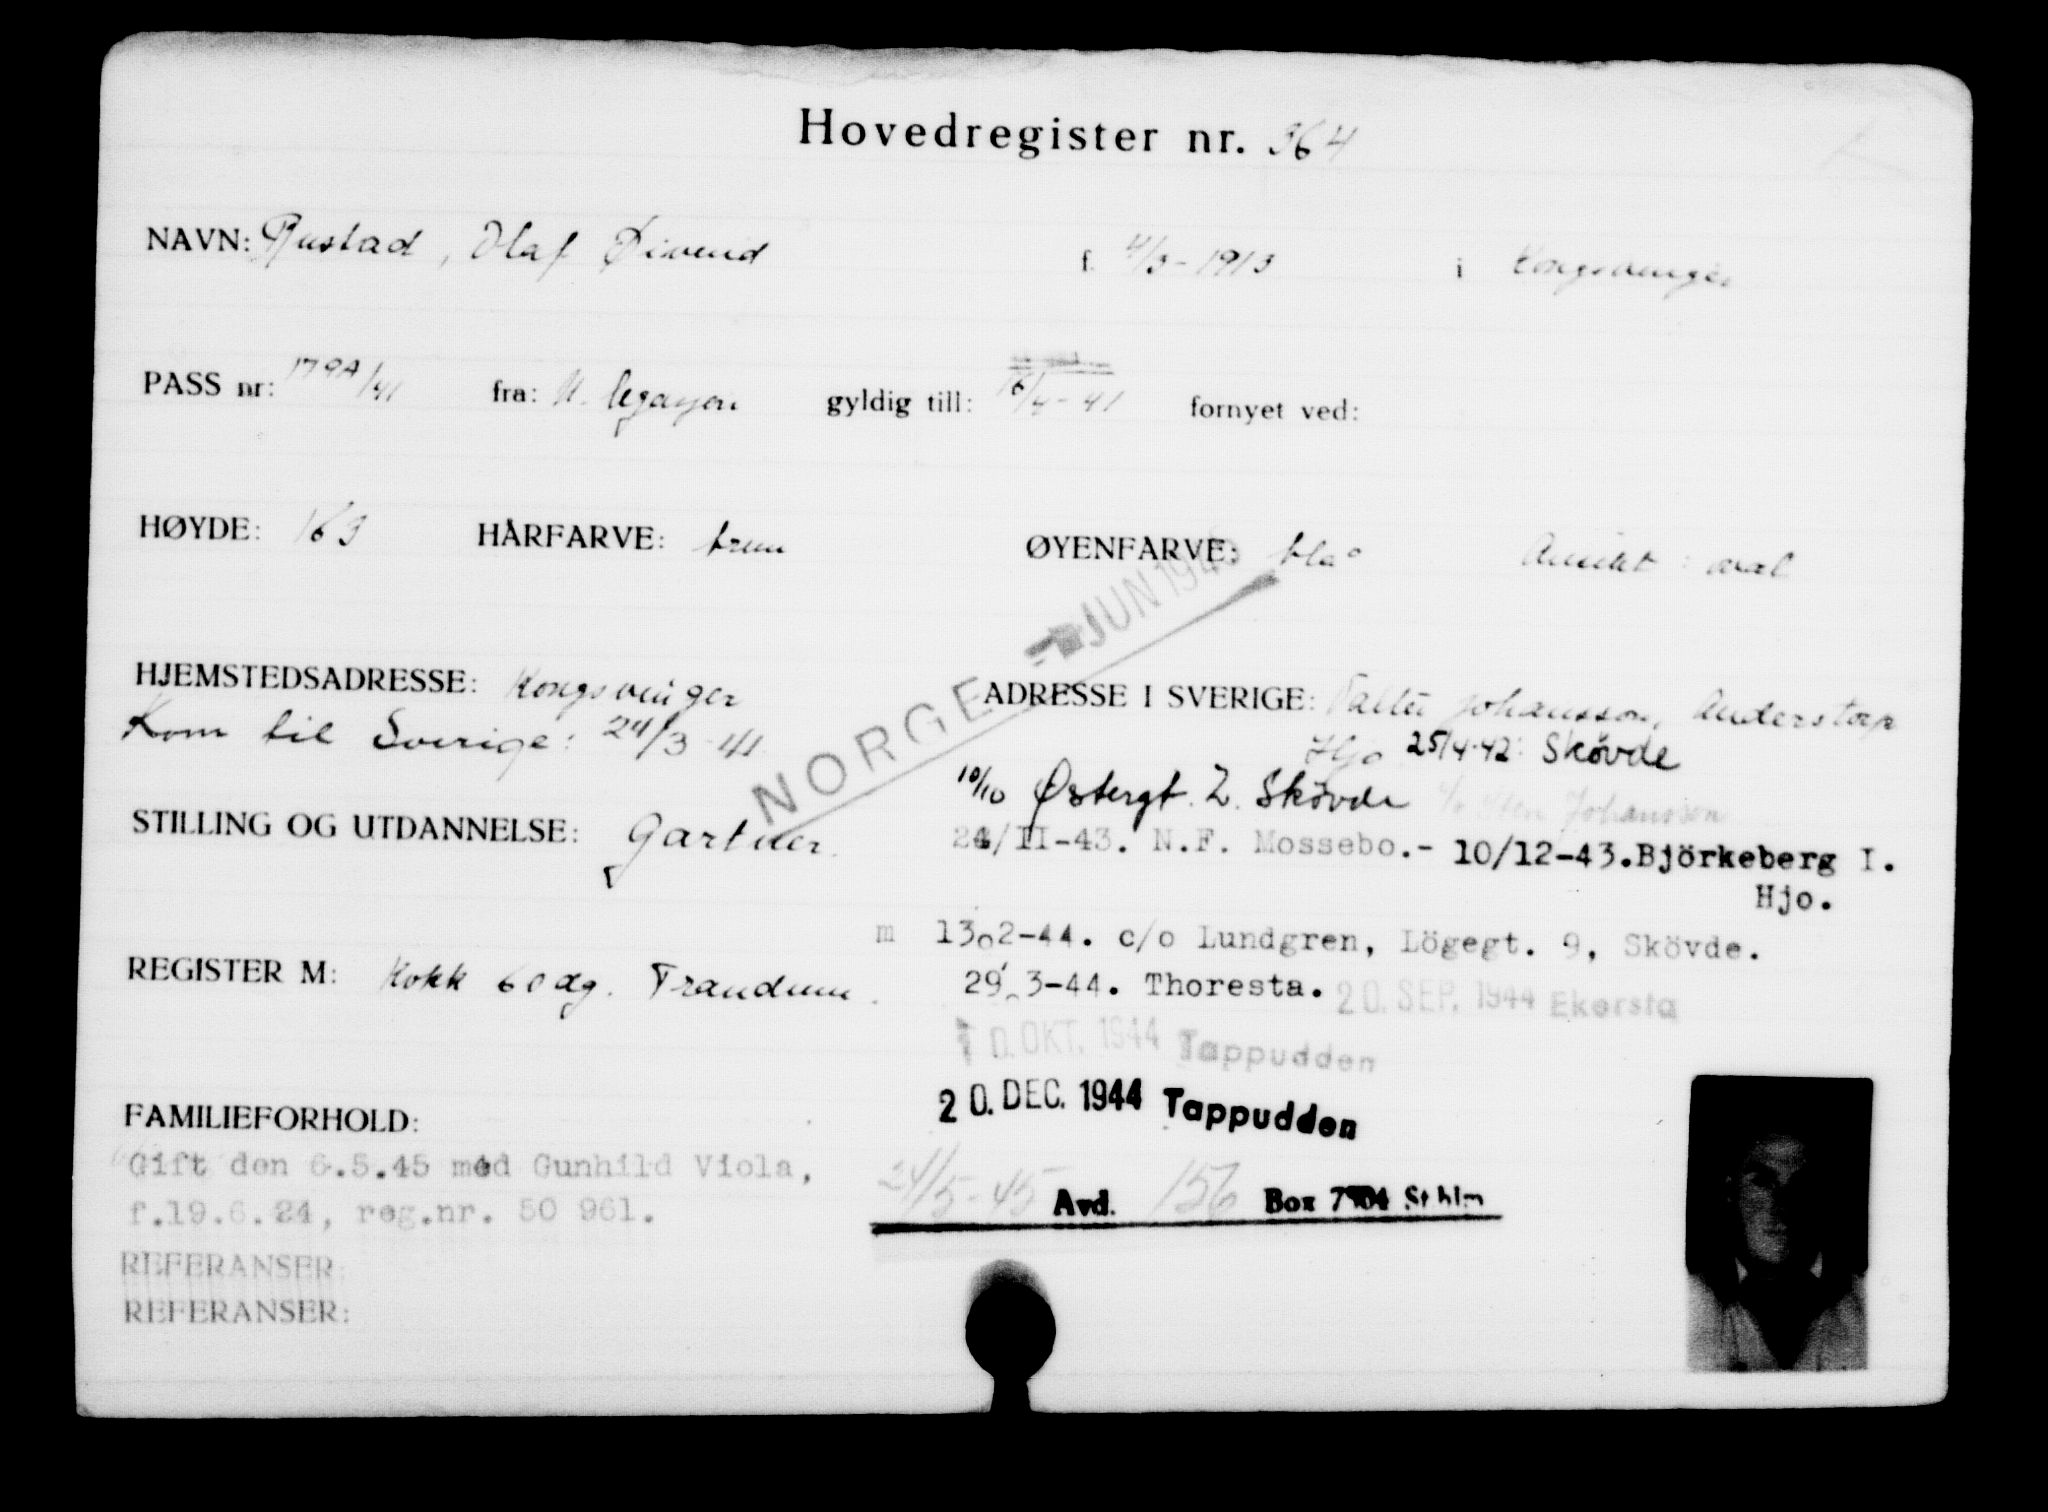 Hovedregister nr. 364
NAVN: Rustad, Olaf Øivend f. 4/3-1913 i Kongsvinger
PASS nr: 179A/41 fra: N. legasjon gyldig till: 16/4-41 fornyet ved:
HØYDE: 169 HÅRFARVE: brun ØYENFARVE: blå Ansikt: oval
JUN 194
NORGE
HJEMSTEDSADRESSE: Kongsvinger
Kom til Sverige: 24/3-41
ADRESSE I SVERIGE: Johansson, Anderstorp
Hjo 25/4-42: Skövde
10/10 Østergt. 2. Skövde c/o Sten Johansson
STILLING OG UTDANNELSE: Gartner.
24/II-43. N.F. Mossebo.- 10/12-43.Björkeberg I.
Hjo.
m 13.2-44. c/o Lundgren, Lögegt. 9, Skövde.
REGISTER M: Kokk 60 dg. Trandum.
29.3-44. Thoresta. 20. SEP. 1944 Ekersta
10. OKT. 1944 Tappudden
20. DEC. 1944 Tappudden
FAMILIEFORHOLD:
Gift den 6.5.45 med Gunhild Viola,
f.19.6.24, reg.nr. 50 961.
24/5-45 Avd. 156 Box 7904 Sthlm
REFERANSER:
REFERANSER: